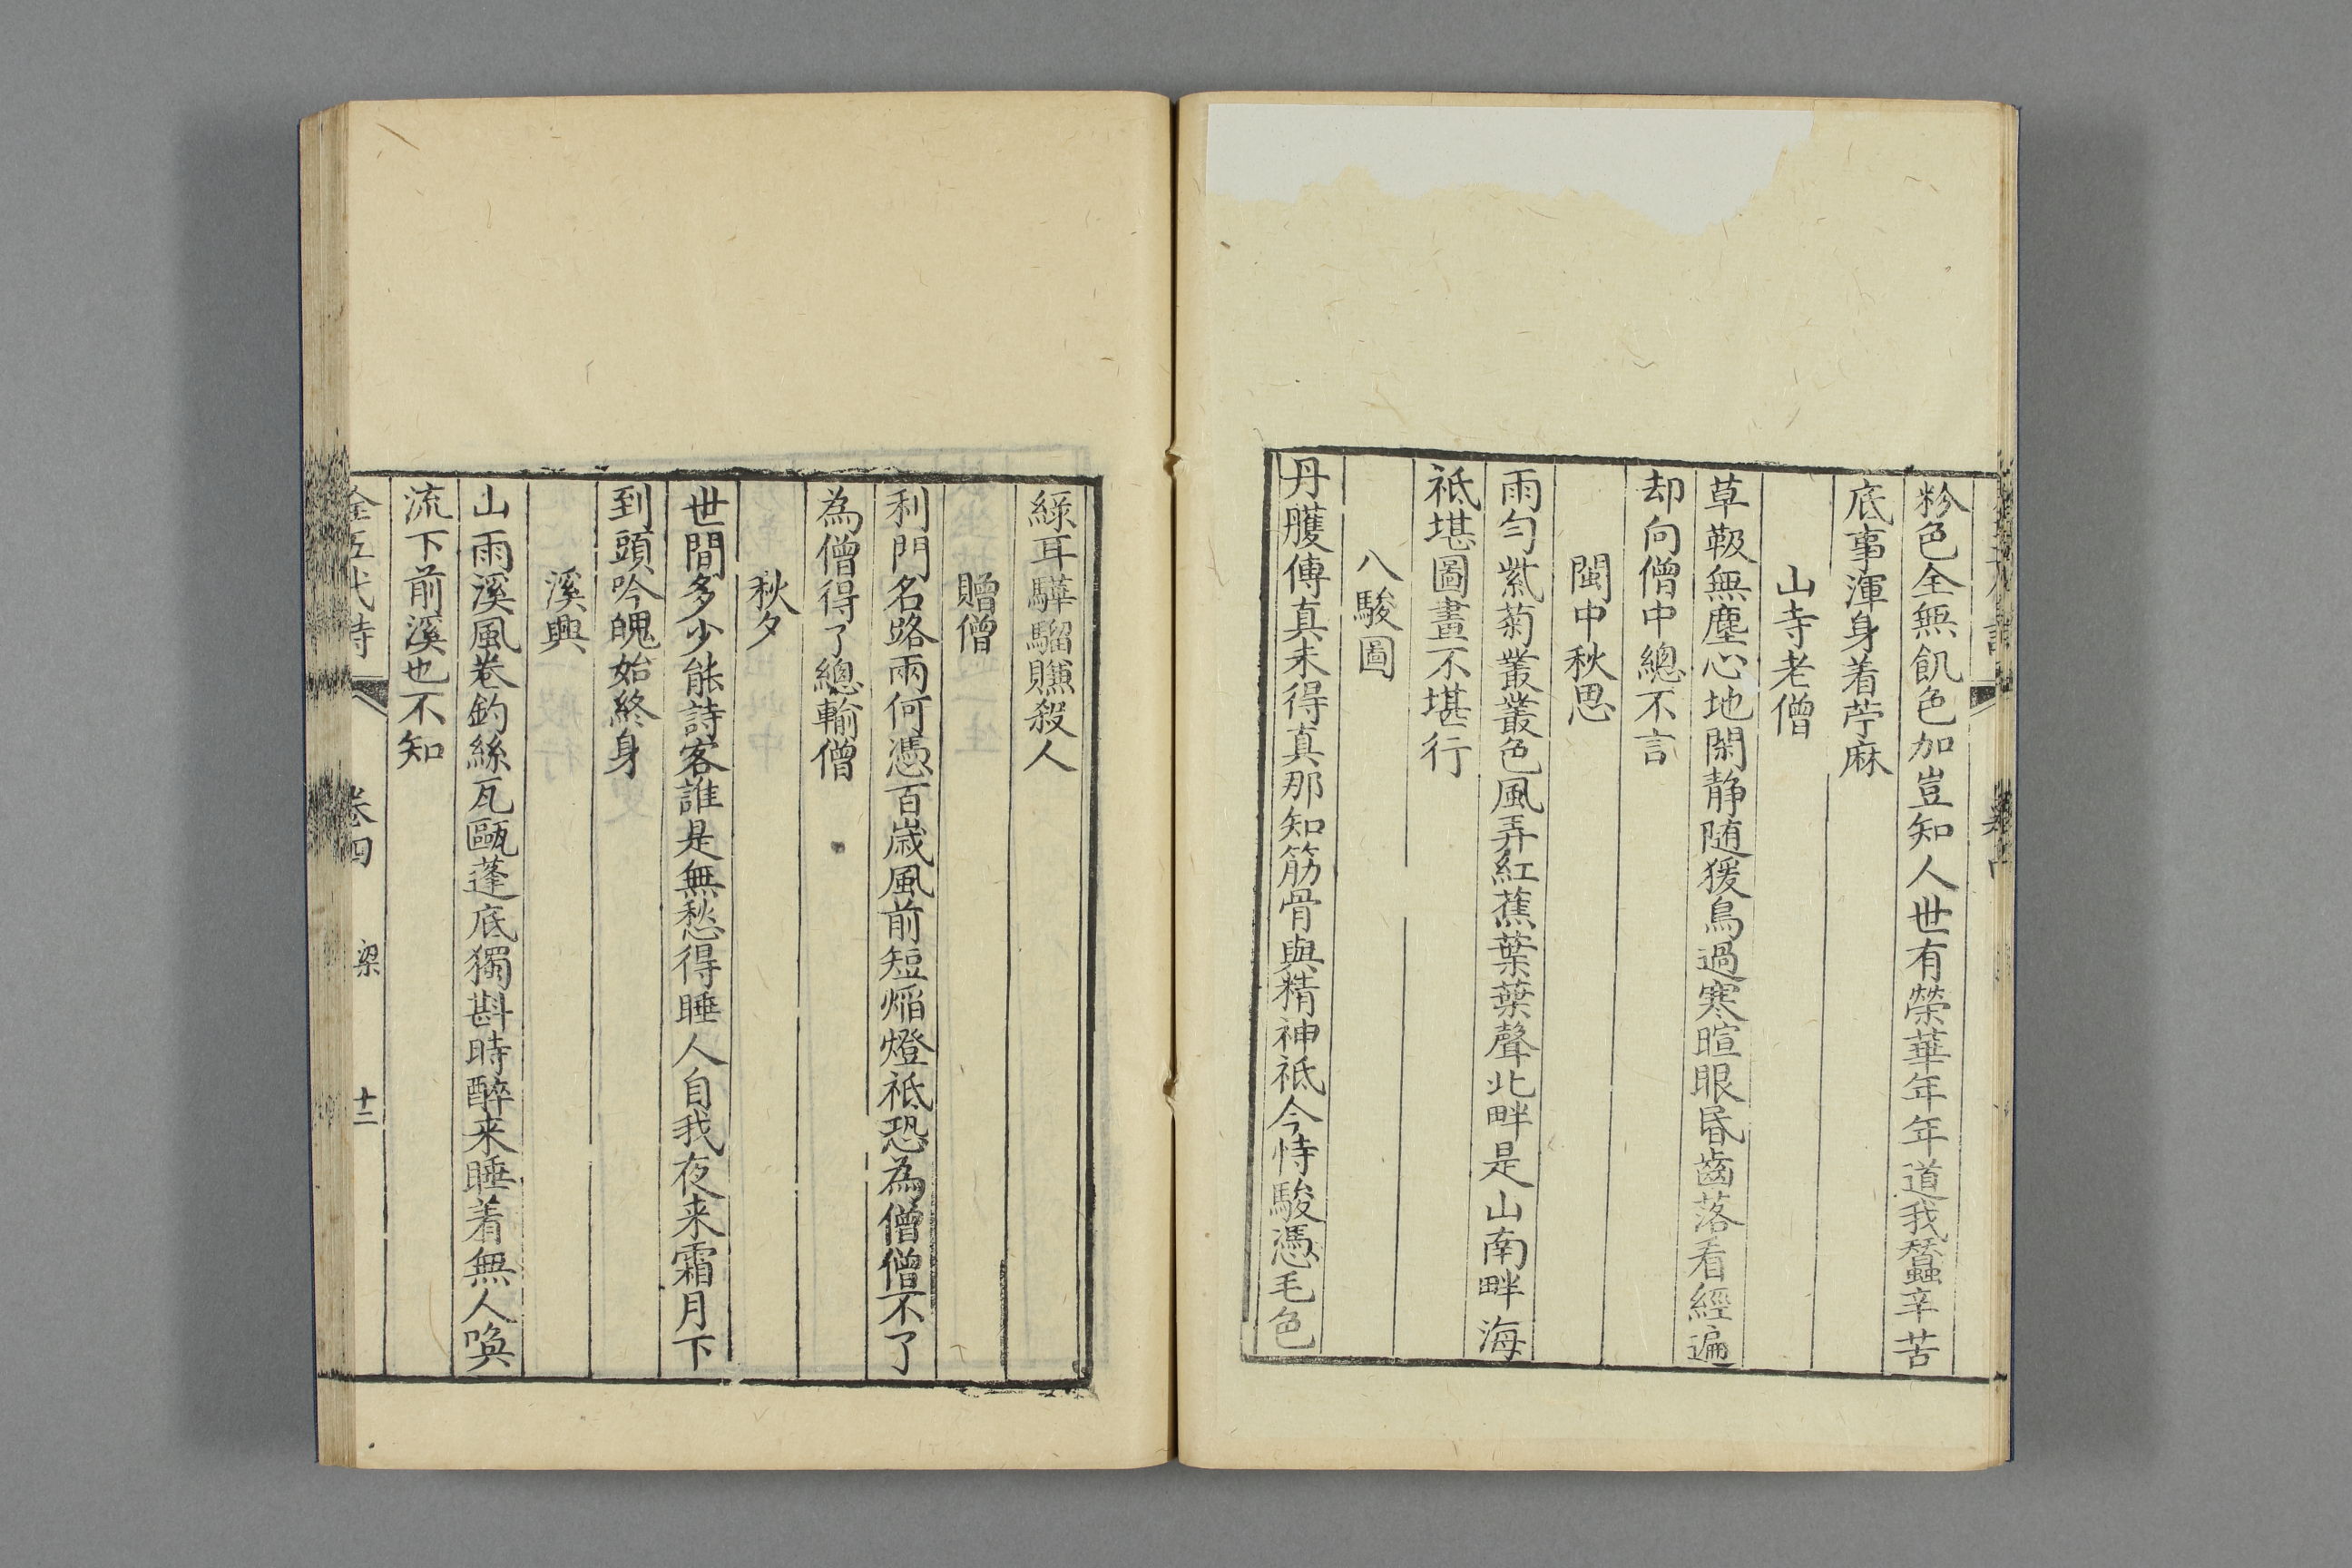 粉色全無飢色加豈知人世有榮華年年道我蠶辛苦
底事渾身着苧麻
山寺老僧
草靸無塵心地閑静随猨鳥過寒暄眼昏齒落看經遍
却向僧中總不言
閩中秋思
雨勻紫菊叢叢色風弄紅蕉葉葉聲北畔是山南畔海
祗堪圖畫不堪行
八駿圖
丹雘傳真未得真那知筋骨與精神祗今恃駿憑毛色
緑耳驊騮賺殺人
贈僧
利門名路兩何憑百歳風前短熖燈祗恐為僧僧不了
為僧得了總輸僧
秋夕
世間多少能詩客誰是無愁得睡人自我夜来霜月下
到頭吟魄始終身
溪興
山雨溪風巻釣絲瓦甌蓬底獨斟時醉来睡着無人喚
流下前溪也不知
全五代詩 卷四 梁 十二